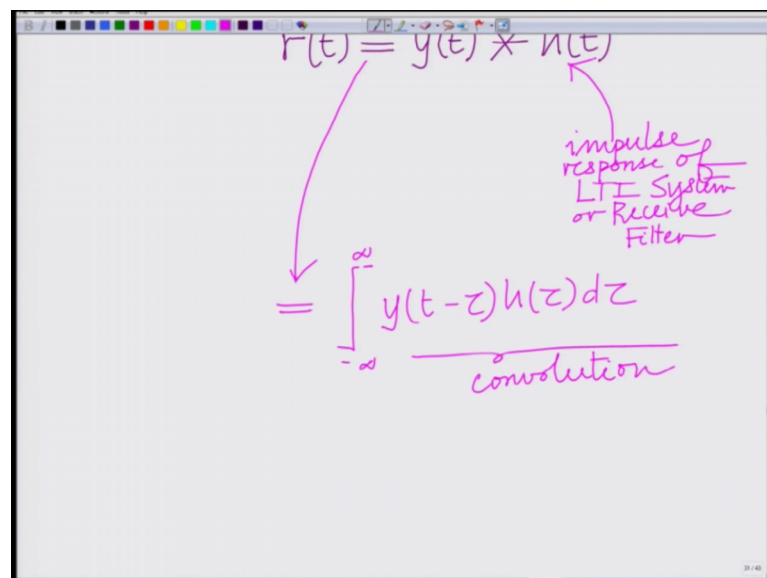 r(t) = y(t) * h(t)
impulse
response of
LTI System
or Receive
Filter
= ∫_{-∞}^{∞} y(t-τ)h(τ)dτ
convolution
31 / 40